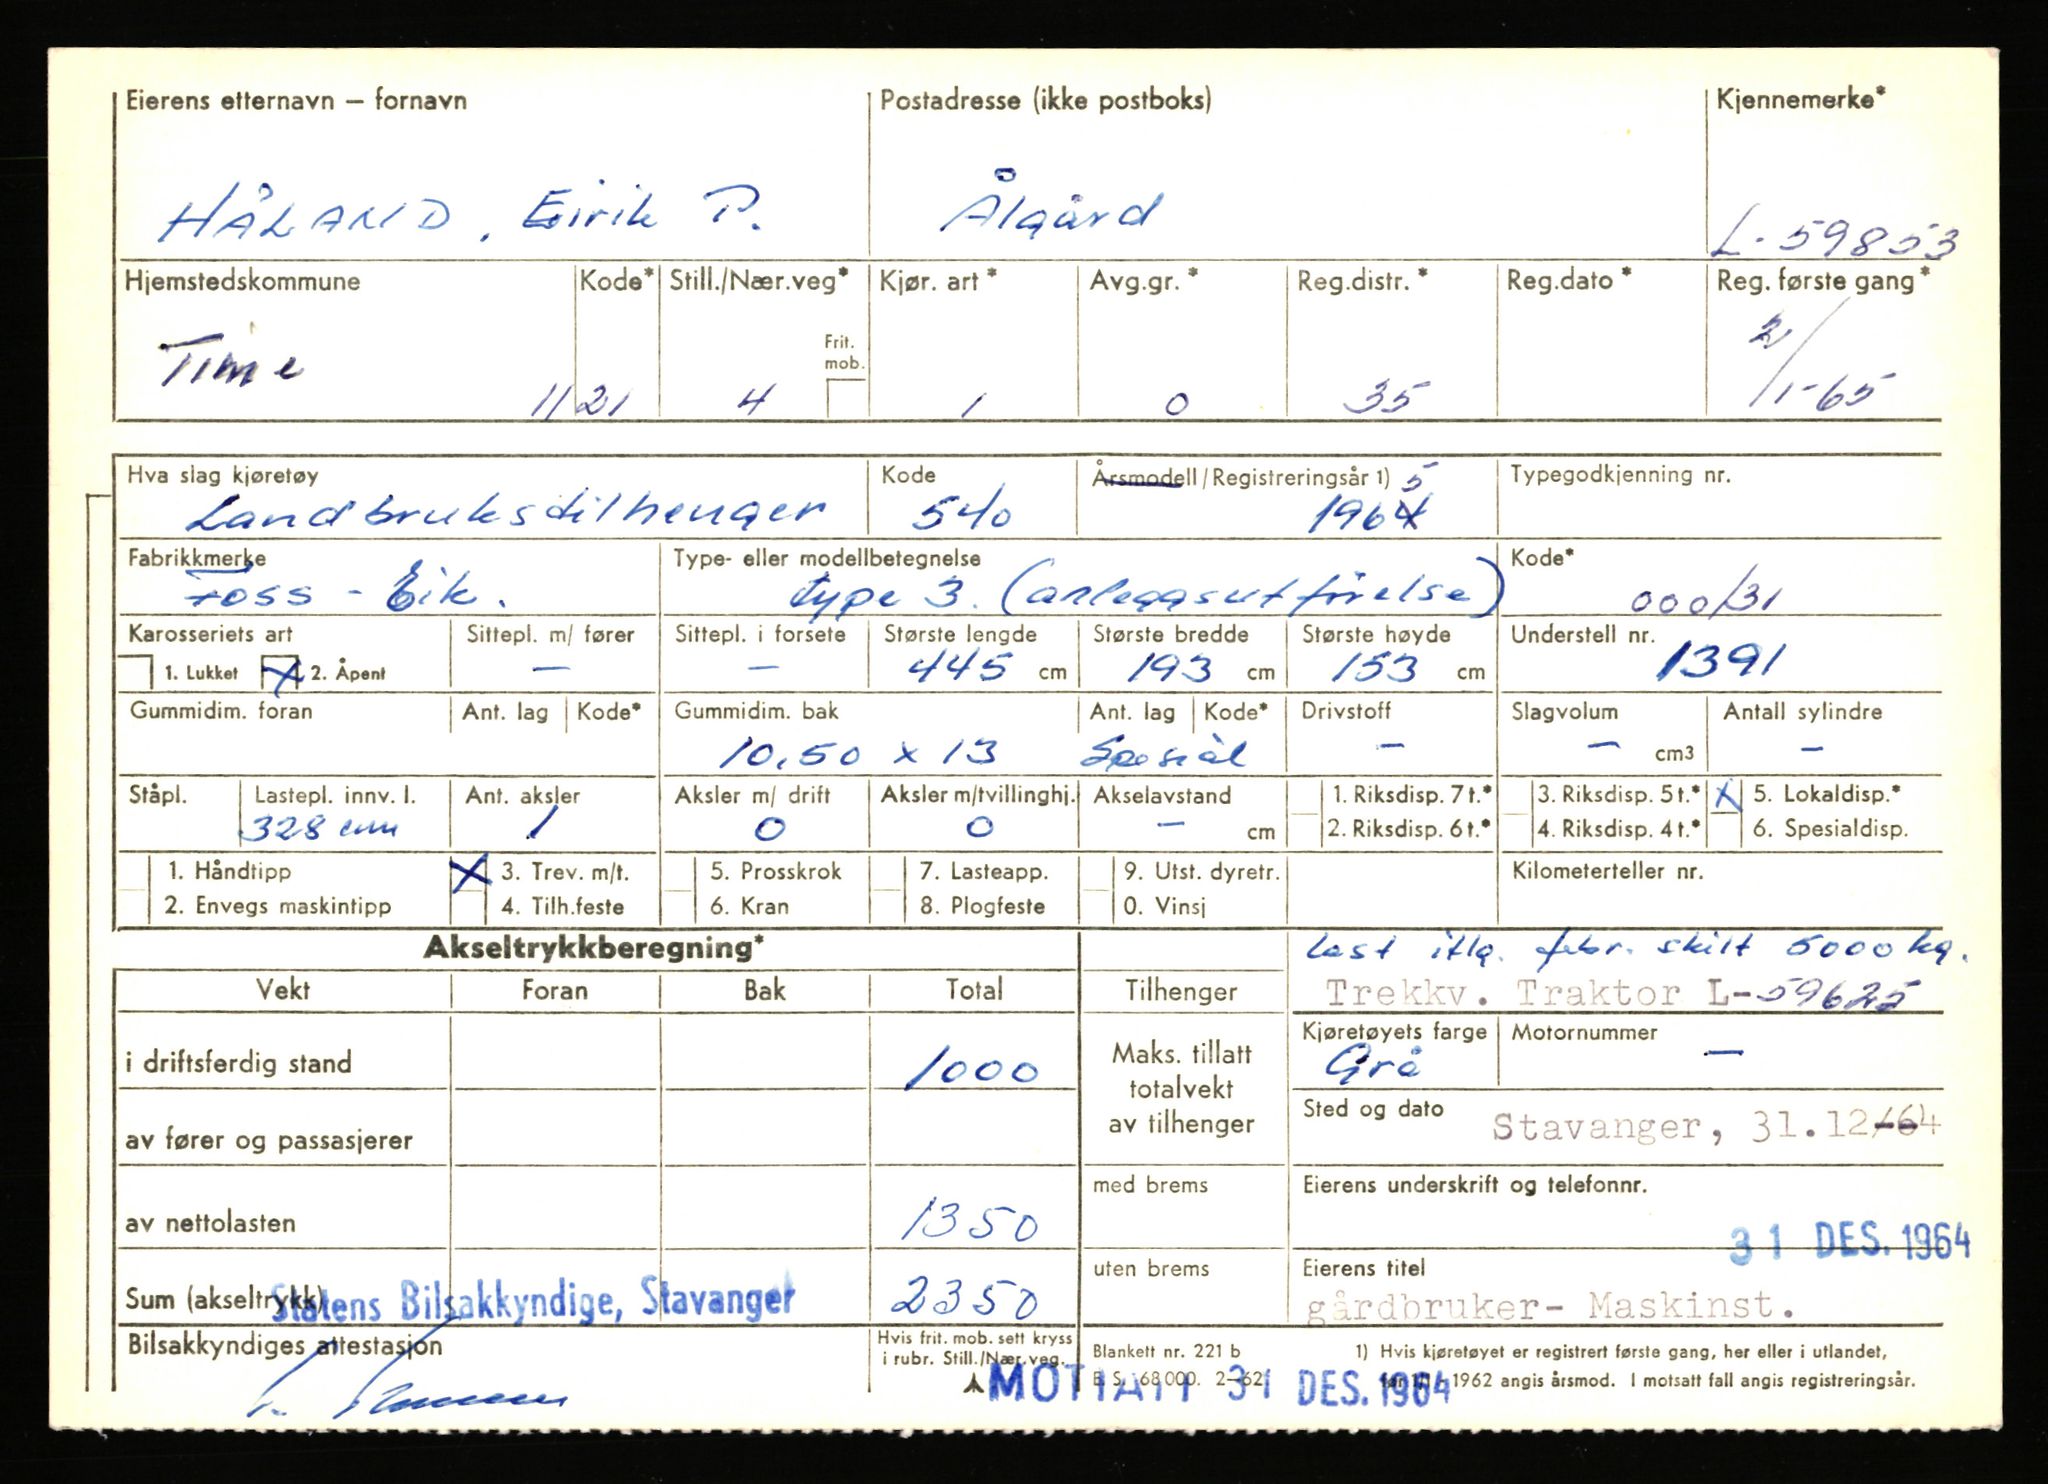 Eierens etternavn – fornavn Postadresse (ikke postboks) Kjennemerke*
HÅLAND, Eirik P. Ålgård L-59853
Hjemstedskommune Kode* Still./Nær.veg* Kjør. art * Avg.gr. * Reg.distr. * Reg.dato * Reg. første gang *
Frit. mob.
Time 1121 4 1 0 35 2/1-65
Hva slag kjøretøy Kode Årsmodell/Registreringsår 1) Typegodkjenning nr.
Landbrukstilhenger 540 1964 5
Fabrikkmerke Type- eller modellbetegnelse Kode*
Foss - Eik. type 3. (anleggsutførelse) 000/31
Karosseriets art Sittepl. m/ fører Sittepl. i forsete Største lengde Største bredde Største høyde Understell nr.
1. Lukket X 2. Åpent – – 445 cm 193 cm 153 cm 1391
Gummidim. foran Ant. lag Kode* Gummidim. bak Ant. lag Kode* Drivstoff Slagvolum Antall sylindre
10,50 x 13 Spesial – – cm3 –
Ståpl. Lastepl. innv. l. Ant. aksler Aksler m/ drift Aksler m/tvillinghj. Akselavstand 1. Riksdisp. 7 t.* 3. Riksdisp. 5 t.* X 5. Lokaldisp.*
328 cm 1 0 0 – cm 2. Riksdisp. 6 t.* 4. Riksdisp. 4 t.* 6. Spesialdisp.
1. Håndtipp X 3. Trev. m/t. 5. Prosskrok 7. Lasteapp. 9. Utst. dyretr. Kilometerteller nr.
2. Envegs maskintipp 4. Tilh.feste 6. Kran 8. Plogfeste 0. Vinsj
Akseltrykkberegning* Last itlg. febr. skilt 5000 kg.
Vekt Foran Bak Total Tilhenger Trekkv. Traktor L-59625
Kjøretøyets farge Motornummer
i driftsferdig stand 1000 Maks. tillatt totalvekt av tilhenger Grå –
Sted og dato Stavanger, 31.12-64
av fører og passasjerer
med brems Eierens underskrift og telefonnr.
av nettolasten 1350
31 DES. 1964
uten brems Eierens titel
Sum (akseltrykk) Statens Bilsakkyndige, Stavanger 2350 gårdbruker- Maskinst.
Bilsakkyndiges attestasjon Hvis frit. mob. sett kryss i rubr. Still./Nær.veg. Blankett nr. 221 b 1) Hvis kjøretøyet er registrert første gang, her eller i utlandet,
E. S. 68 000. 2–62 før 1/1 1962 angis årsmod. I motsatt fall angis registreringsår.
MOTTATT 31 DES. 1964